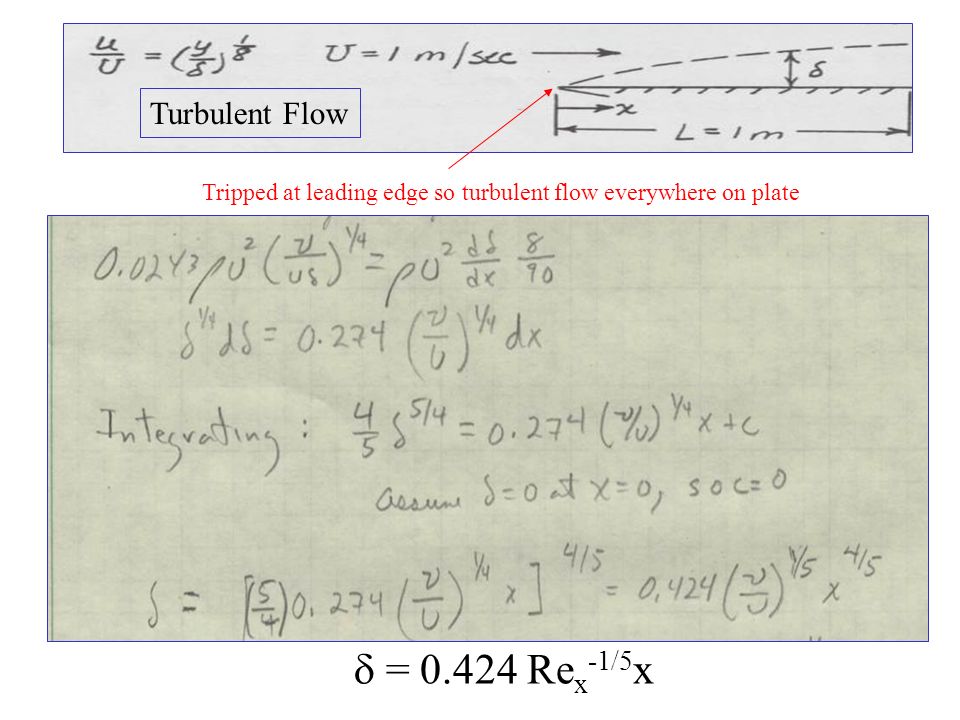 u/U = (y/δ)^1/8 U = 1 m/sec δ
Turbulent Flow
x
L = 1 m
Tripped at leading edge so turbulent flow everywhere on plate
0.0243 ρU² (ν/Uδ)^1/4 = ρU² dδ/dx 8/90
δ^1/4 dδ = 0.274 (ν/U)^1/4 dx
Integrating: 4/5 δ^5/4 = 0.274 (ν/U)^1/4 x + c
Assume δ=0 at x=0, so c=0
δ = [(5/4) 0.274 (ν/U)^1/4 x]^4/5 = 0.424 (ν/U)^1/5 x^4/5
δ = 0.424 Reₓ^-1/5 x